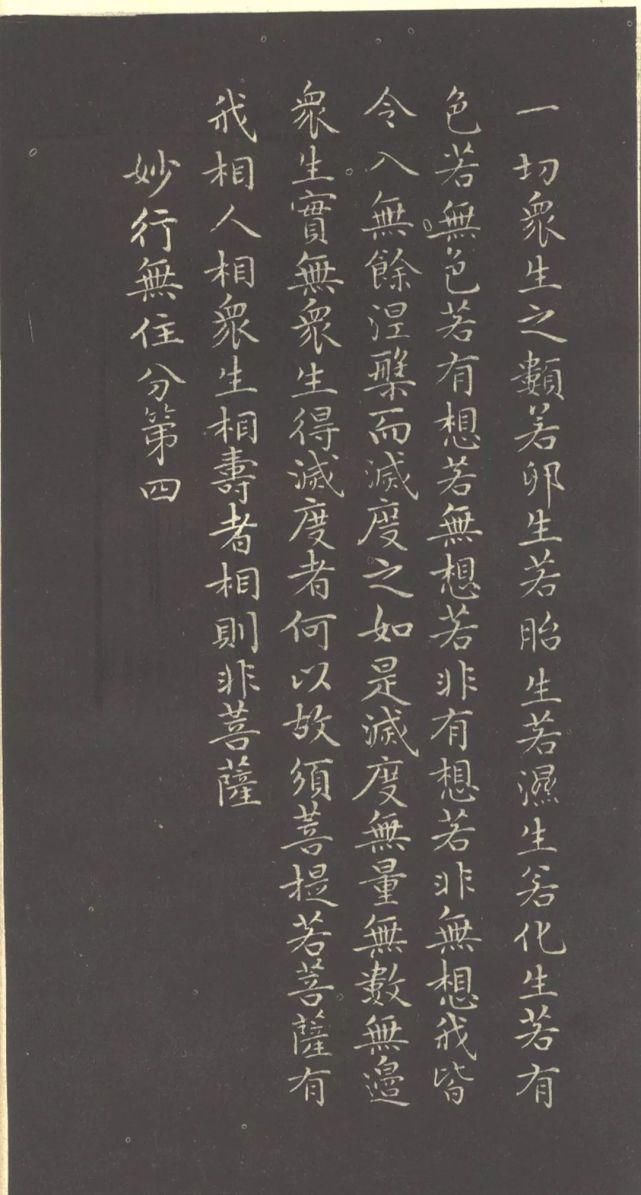 一切衆生之類若卵生若胎生若濕生若化生若有
色若無色若有想若無想若非有想若非無想我皆
令入無餘涅槃而滅度之如是滅度無量無數無邊
衆生實無衆生得滅度者何以故須菩提若菩薩有
我相人相衆生相壽者相則非菩薩
妙行無住分第四